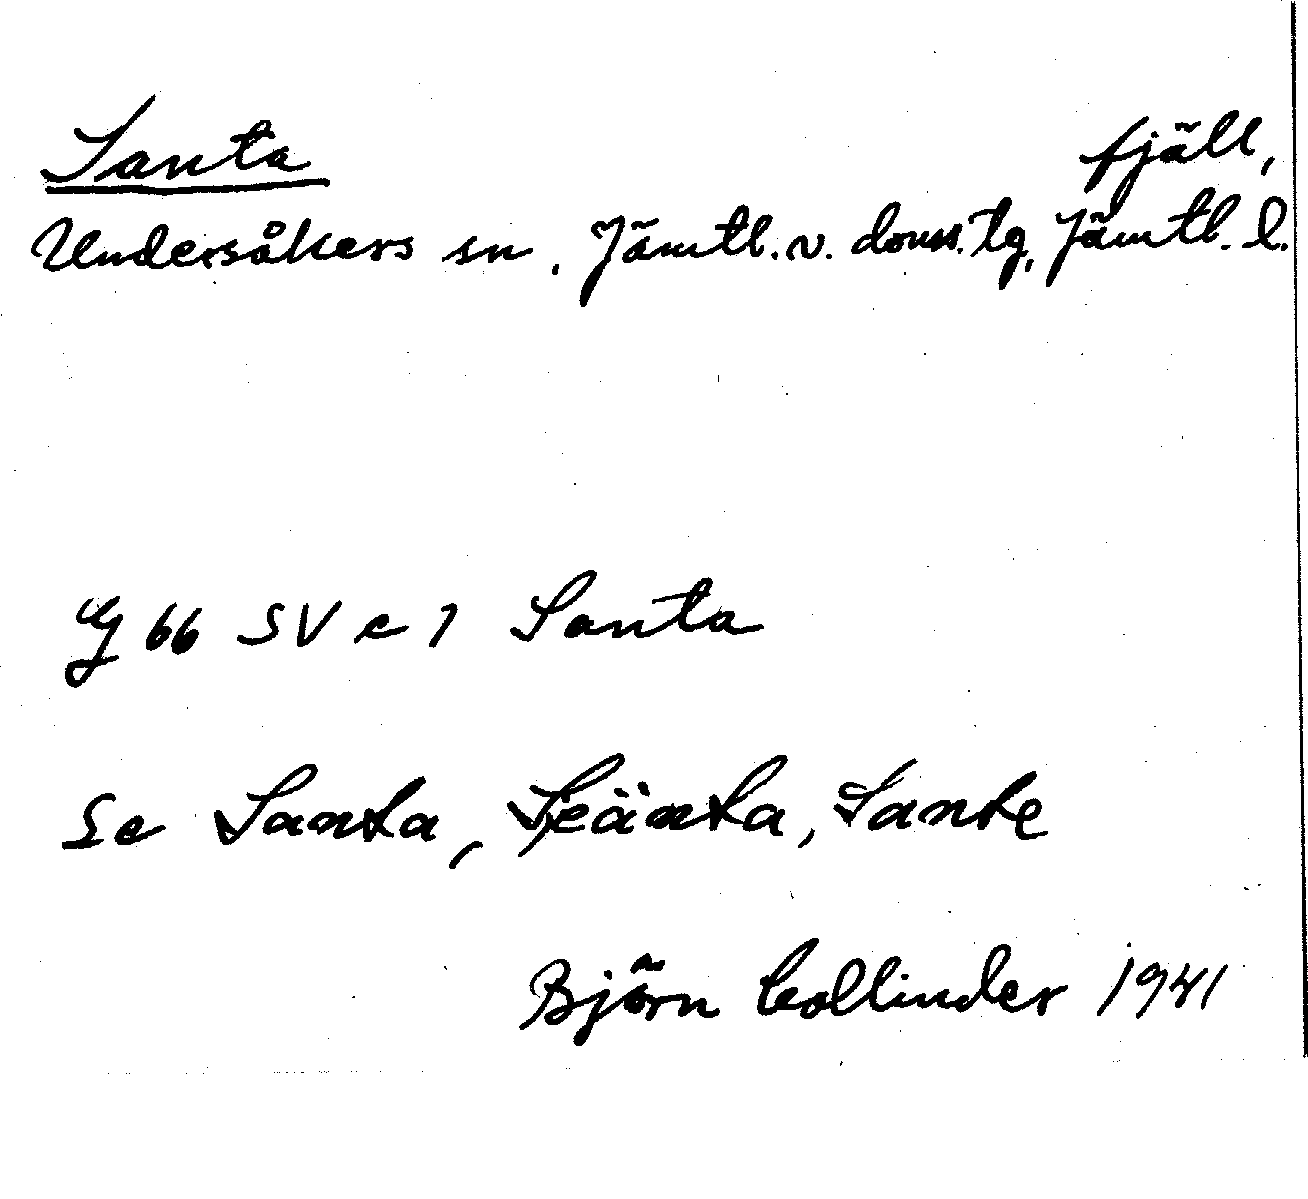 Santa fjäll,
Undersåkers sn, Jämtl. v. doms. tg, Jämtl. l.
G 66 SV c 1 Santa
Se Santa, Seänta, Sante
Björn Collinder 1941